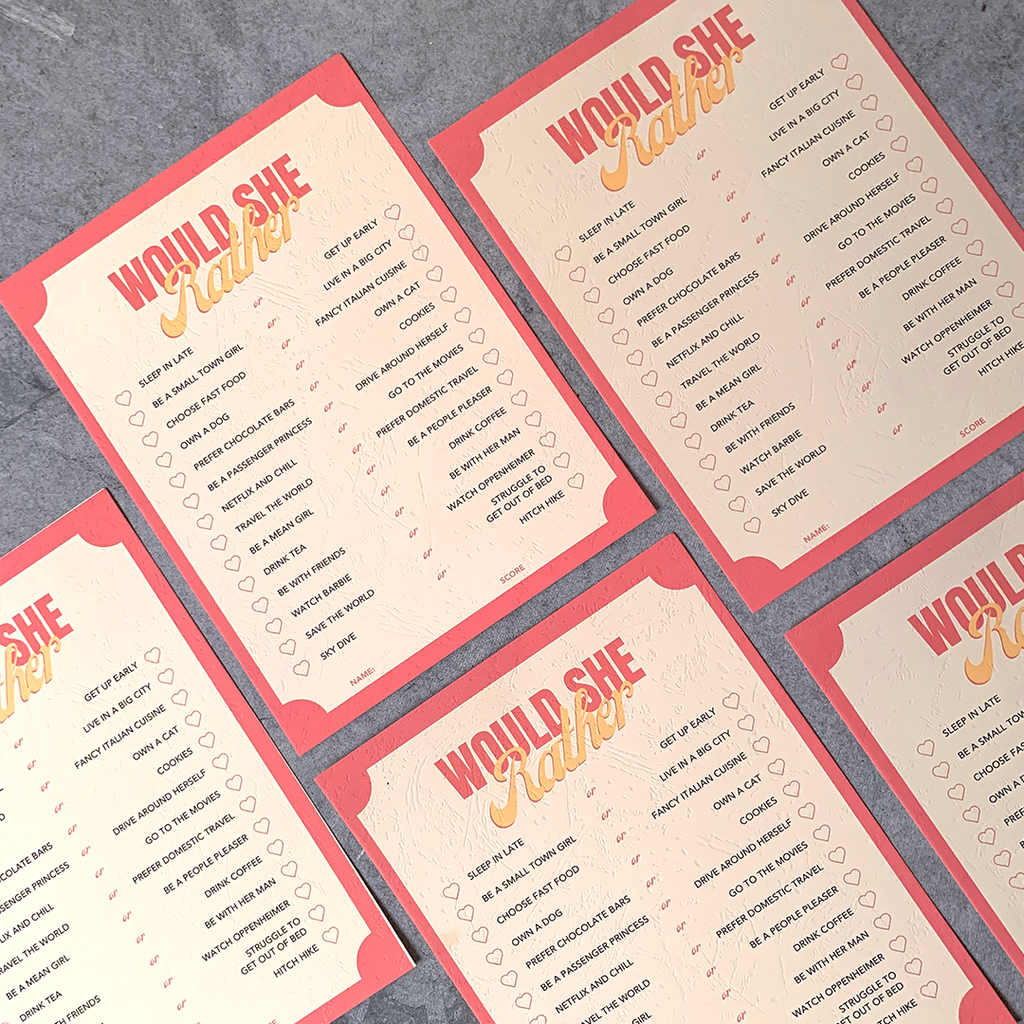 WOULD SHE
Rather
SLEEP IN LATE or GET UP EARLY
BE A SMALL TOWN GIRL or LIVE IN A BIG CITY
CHOOSE FAST FOOD or FANCY ITALIAN CUISINE
OWN A DOG or OWN A CAT
PREFER CHOCOLATE BARS or COOKIES
BE A PASSENGER PRINCESS or DRIVE AROUND HERSELF
NETFLIX AND CHILL or GO TO THE MOVIES
TRAVEL THE WORLD or PREFER DOMESTIC TRAVEL
BE A MEAN GIRL or BE A PEOPLE PLEASER
DRINK TEA or DRINK COFFEE
BE WITH FRIENDS or BE WITH HER MAN
WATCH BARBIE or WATCH OPPENHEIMER
SAVE THE WORLD or STRUGGLE TO
GET OUT OF BED
SKY DIVE or HITCH HIKE
NAME: SCORE
WOULD SHE
Rather
SLEEP IN LATE or GET UP EARLY
BE A SMALL TOWN GIRL or LIVE IN A BIG CITY
CHOOSE FAST FOOD or FANCY ITALIAN CUISINE
OWN A DOG or OWN A CAT
PREFER CHOCOLATE BARS or COOKIES
BE A PASSENGER PRINCESS or DRIVE AROUND HERSELF
NETFLIX AND CHILL or GO TO THE MOVIES
TRAVEL THE WORLD or PREFER DOMESTIC TRAVEL
BE A MEAN GIRL or BE A PEOPLE PLEASER
DRINK TEA or DRINK COFFEE
BE WITH FRIENDS or BE WITH HER MAN
WATCH BARBIE or WATCH OPPENHEIMER
SAVE THE WORLD or STRUGGLE TO
GET OUT OF BED
SKY DIVE or HITCH HIKE
NAME: SCORE
SHE
ther
or GET UP EARLY
or LIVE IN A BIG CITY
or FANCY ITALIAN CUISINE
or OWN A CAT
COLATE BARS or COOKIES
SENGER PRINCESS or DRIVE AROUND HERSELF
LIX AND CHILL or GO TO THE MOVIES
RAVEL THE WORLD or PREFER DOMESTIC TRAVEL
BE A MEAN GIRL or BE A PEOPLE PLEASER
DRINK TEA or DRINK COFFEE
FRIENDS or BE WITH HER MAN
WATCH OPPENHEIMER
STRUGGLE TO
GET OUT OF BED
HITCH HIKE
WOULD SHE
Rather
SLEEP IN LATE or GET UP EARLY
BE A SMALL TOWN GIRL or LIVE IN A BIG CITY
CHOOSE FAST FOOD or FANCY ITALIAN CUISINE
OWN A DOG or OWN A CAT
PREFER CHOCOLATE BARS or COOKIES
BE A PASSENGER PRINCESS or DRIVE AROUND HERSELF
NETFLIX AND CHILL or GO TO THE MOVIES
THE WORLD or PREFER DOMESTIC TRAVEL
or BE A PEOPLE PLEASER
or DRINK COFFEE
BE WITH HER MAN
WATCH OPPENHEIMER
STRUGGLE TO
GET OUT OF BED
HITCH HIKE
WOULD
Ra
SLEEP IN LATE
BE A SMALL TOW
CHOOSE FAS
OWN A